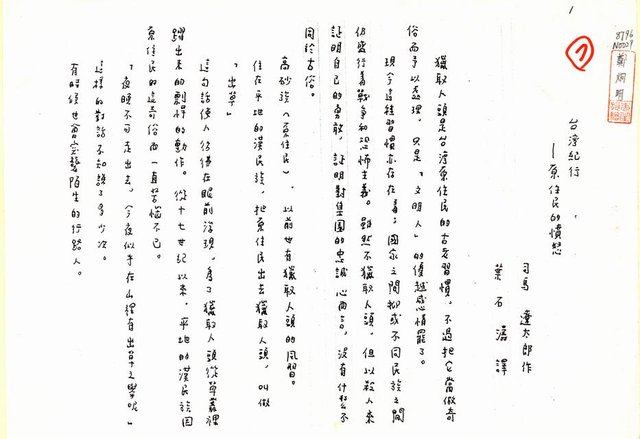 1
8796
N0029
鄭烱明
7
台灣紀行
—原住民的憤怒
司馬遼太郎作
葉石濤譯
獵取人頭是台灣原住民的古老習慣。不過把它當做奇
俗而予以處理，只是「文明人」的優越感情罷了。
現今這種習慣亦存在著；國家之間抑或不同民族之間
仍盛行着戰爭和恐怖主義。雖然不獵取人頭，但以殺人來
証明自己的勇敢，証明對集團的忠誠心而言，沒有什麼不
同於古俗。
高砂族（原住民），以前也有獵取人頭的風習。
住在平地的漢民族，把原住民出去獵取人頭，叫做
「出草」
這句話使人彷彿在眼前浮現，為了獵取人頭從草叢裡
躍出來的剽悍的動作。從十七世紀以來，平地的漢民族因
原住民的這奇俗而一直苦惱不已。
「夜晚不可走出去，今夜似乎在山裡有出草之舉呢」
這樣的對話不知說了多少次。
有時候也會突襲陌生的行路人。